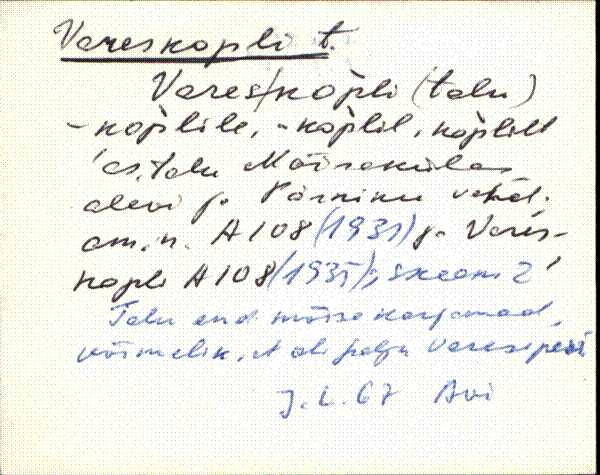 Vareskopli t.
Vares/kòpli (talu)
-kòplile, -kòplil, kòplilt
'as. talu Mõisakülas
alevi ja Pärniku vahel.
am. n. A 108 (1931) ja Vares-
kopli A 108 (1935);
Talu end. mõisa karjamaad,
võimalik, et oli palju varesepesi
J. L. 67 Avi